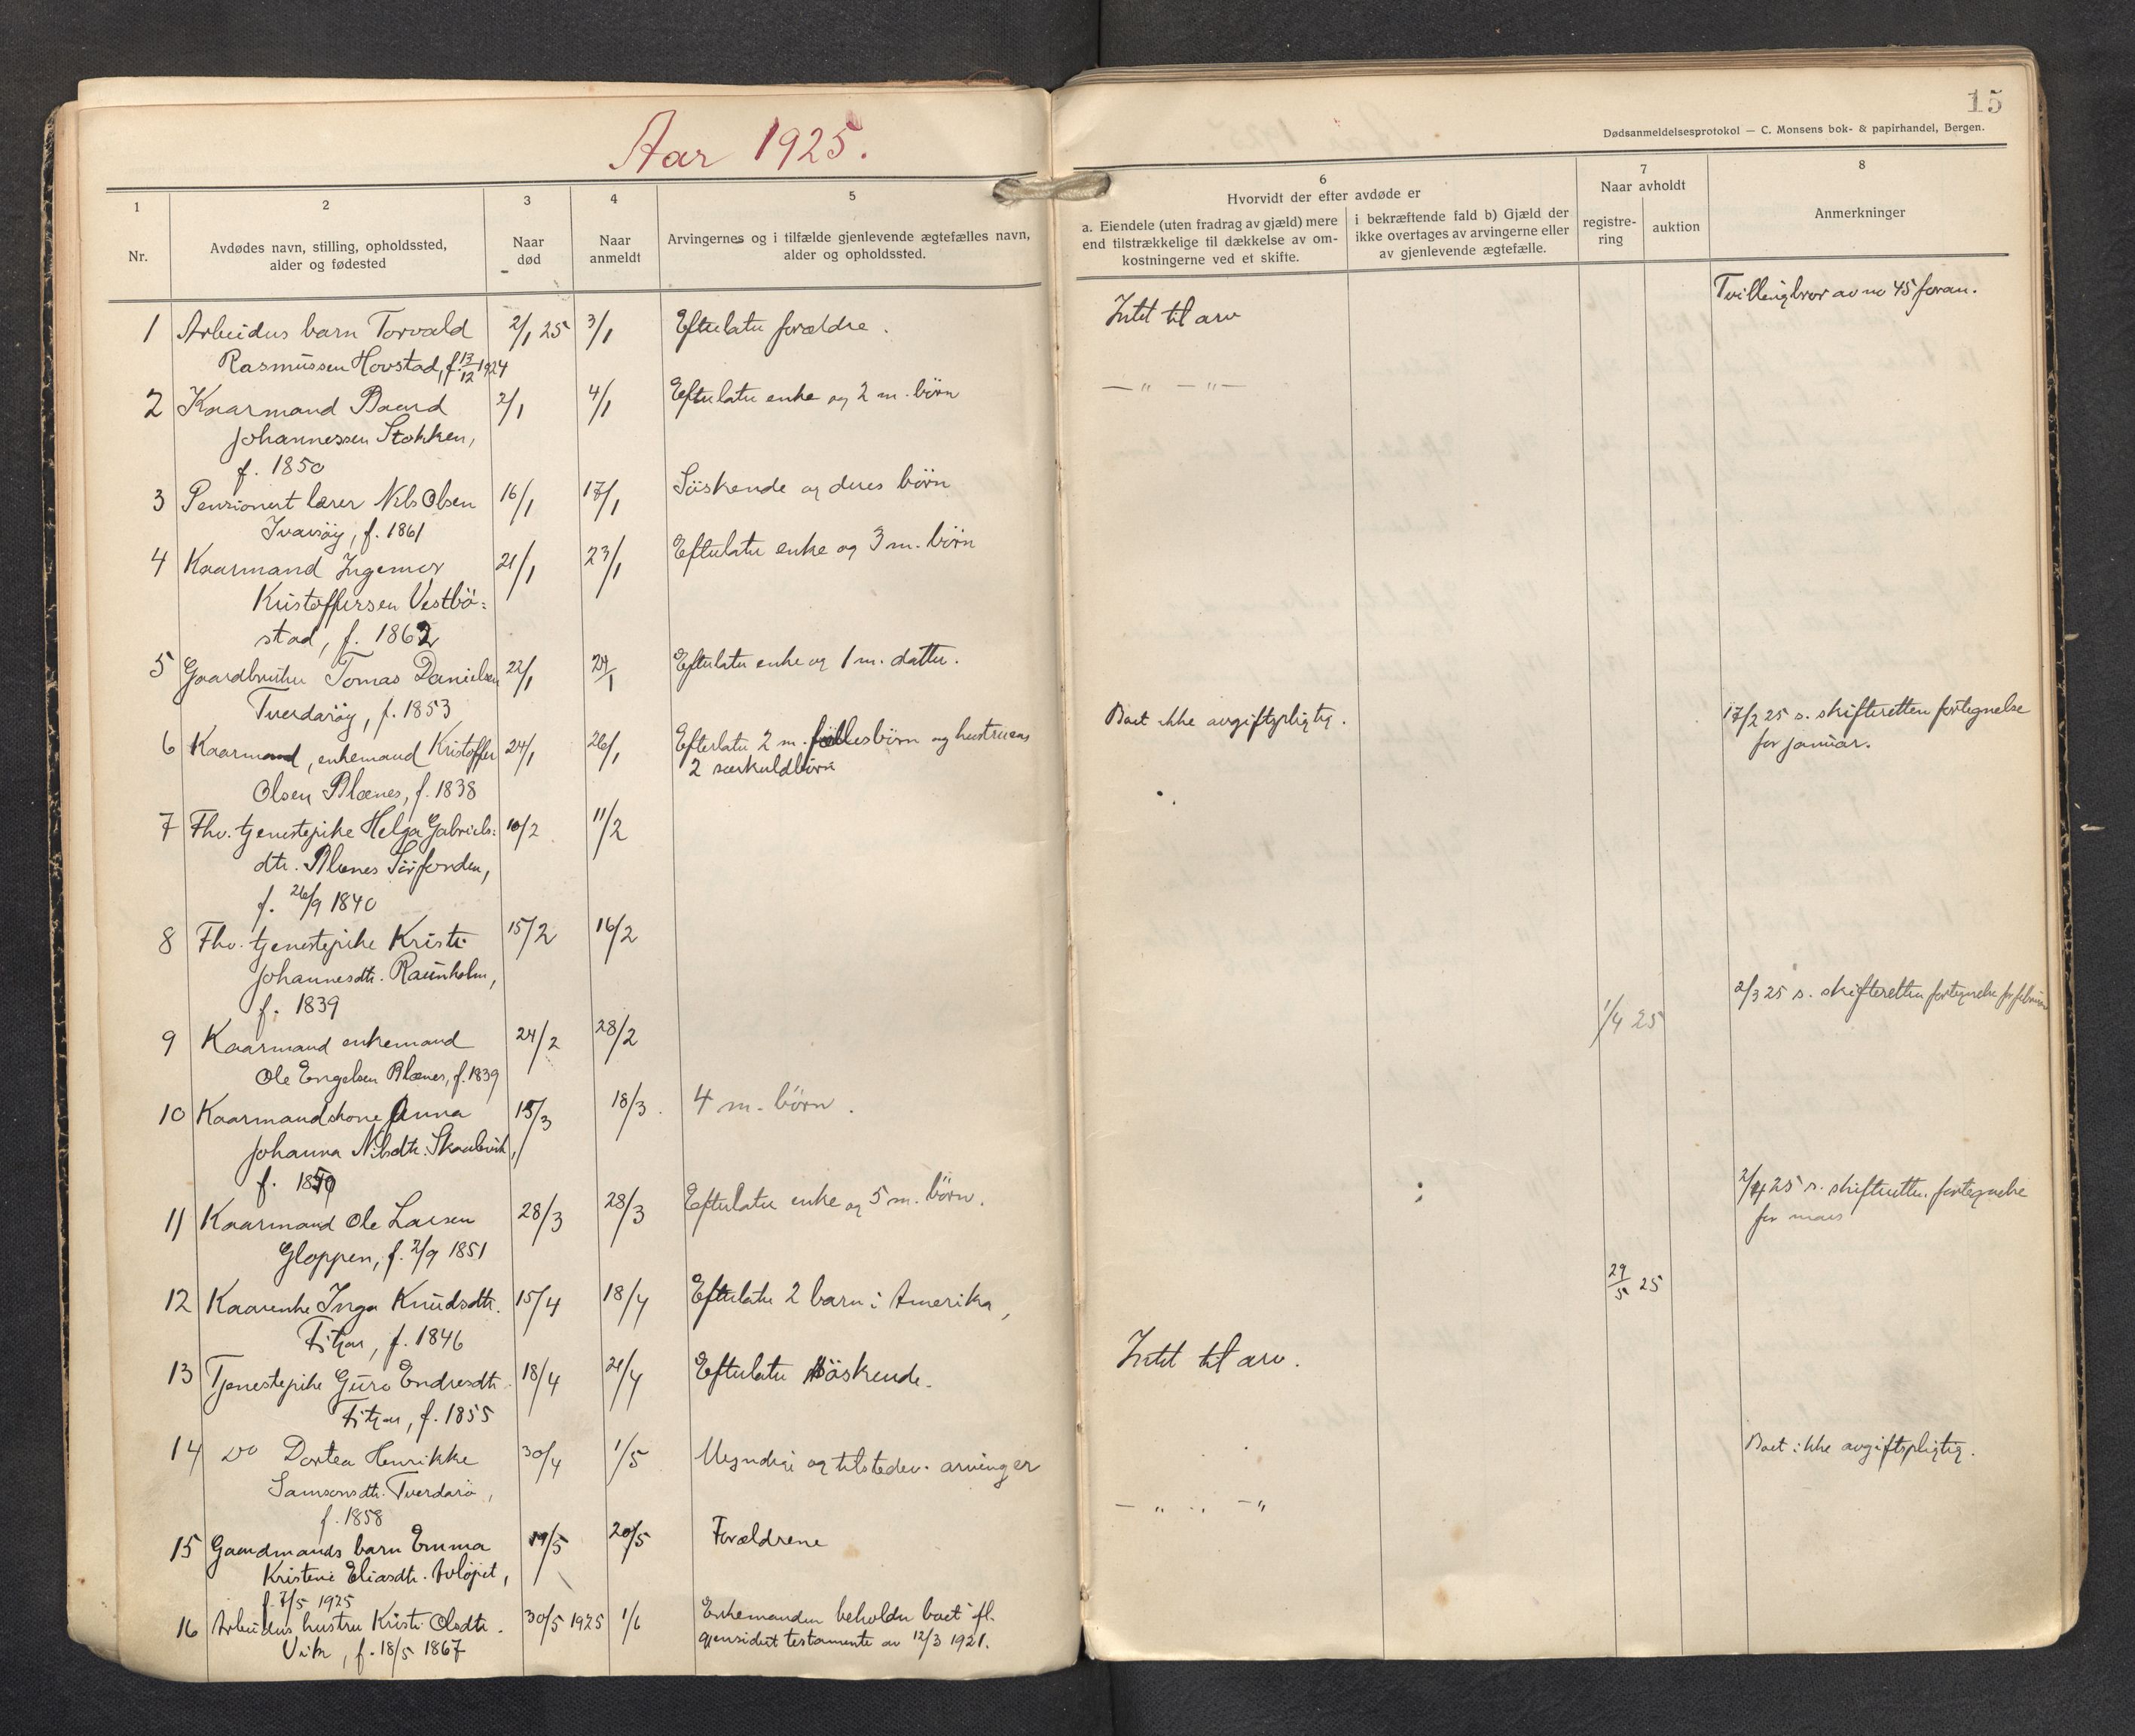 Aar 1925.
15
Dødsanmeldelsesprotokol — C. Monsens bok- & papirhandel, Bergen.
1
Nr.
2
Avdødes navn, stilling, opholdssted,
alder og fødested
3
Naar
død
4
Naar
anmeldt
5
Arvingernes og i tilfælde gjenlevende ægtefælles navn,
alder og opholdssted.
6
Hvorvidt der efter avdøde er
a. Eiendele (uten fradrag av gjæld) mere
end tilstrækkelige til dækkelse av om-
kostningerne ved et skifte.
i bekræftende fald b) Gjæld der
ikke overtages av arvingerne eller
av gjenlevende ægtefælle.
7
Naar avholdt
registre-
ring
auktion
8
Anmerkninger
1 Arbeiders barn Torvald 2/1 25 3/1 Efterlater forældre. Intet til arv Tvillingbror av no 45 foran.
Rasmussen Hovstad, f. 13/12 1924
2 Kaarmand Baard 2/1 4/1 Efterlater enke og 2 m. börn — " — " —
Johannessen Stokken,
f. 1850
3 Pensionert lærer Nils Olsen 16/1 17/1 Söskende og deres börn
Ivarsöy, f. 1861
4 Kaarmand Ingemor 21/1 23/1 Efterlater enke og 3 m. börn
Kristoffersen Vestbö:
stad, f. 1862
5 Gaardbruker Tomas Danielsen 22/1 24/1 Efterlater enke og 1 m. datter.
Tverdaröy, f. 1853 Boet ikke avgiftspligtig. 17/2 25 s. skifteretten fortegnelse
for januar.
6 Kaarmand, enkemand Kristoffer 24/1 26/1 Efterlater 2 m. fællesbörn og hustruens
2 særkuldbörn
Olsen Blænes, f. 1838
7 Fhv. tjenestepike Helga Gabriels: 10/2 11/2
dtr. Blænes Sörfonden,
f. 26/9 1840
8 Fhv. tjenestepike Kristi 15/2 16/2
Johannesdtr. Raunholm,
f. 1839 1/4 25 2/3 25 s. skifteretten fortegnelse for februar
9 Kaarmand enkemand 24/2 28/2
Ole Engelsen Blænes, f. 1839
10 Kaarmandskone Anna 15/3 18/3. 4 m. börn.
Johanna Nilsdtr. Skaalevik,
f. 1850
11 Kaarmand Ole Larsen 28/3 28/3 Efterlater enke og 5 m. börn. 2/4 25 s. skifteretten fortegnelse
for mars
Gloppen, f. 2/9 1851
12 Kaarenke Inga Knudsdtr. 15/4 18/4 Efterlater 2 barn i Amerika, 29/5 25
Fitjar, f. 1846
13 Tjenestepike Guro Endresdtr. 18/4 21/4 Efterlater söskende. Intet til arv.
Fitjar, f. 1855
14 Do Dortea Henrikke 30/4 1/5 Myndige og tilstedev. arvinger Boet ikke avgiftspligtig.
Samsonsdtr. Tverdarö,
f. 1858
15 Gaardmands barn Emma 19/5 20/5 Forældrene — " .. — "
Kristine Eliasdtr. Avløpet,
f. 7/5 1925
16 Arbeiders hustru Kristi Olsdtr. 30/5 1925 1/6 Enkemanden beholder boet ifl.
gjensidert testamente av 12/3 1921.
Vik, f. 18/5 1867